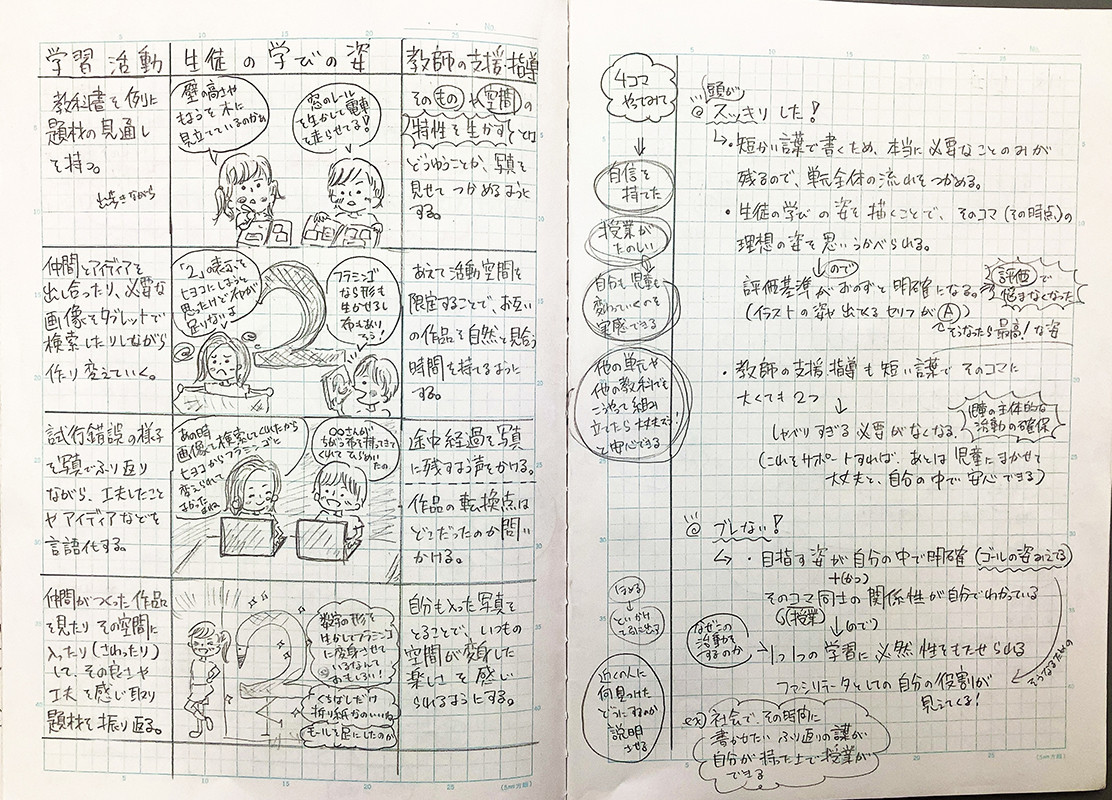 学習活動
生徒の学びの姿
教師の支援・指導
教科書を例に
題材の見通し
を持つ。
壁の高さや
もようを木に
見立てているのかぁ
窓のレール
を生かして電車
を走らせてる!
そのものや空間の
特性を生かす とは
どうゆうことか、写真を
見せてつかめるように
する。
仲間とアイディアを
出し合ったり、必要な
画像をタブレットで
検索したりしながら
作り変えていく。
「2」の表示を
ヒヨコにしようと
思ったけど布が
足りないよ
フラミンゴ
なら形も
生かせるし
布もあり
そう!
あえて活動空間を
限定することで、お互い
の作品を自然と見合う
時間を持てるように
する。
試行錯誤の様子
を写真でふり返り
ながら、工夫したこと
やアイディアなどを
言語化する。
あの時
画像で検索してくれたから
ヒヨコからフラミンゴに
変えられて
よかった
よね
○○さんが
ちがう布を持ってきて
くれて
途中経過を写真
に残すよう声をかける。
作品の転換点は
どこだったのか問い
かける。
仲間がつくった作品
を見たり その空間に
入ったり(さわったり)
して、その良さや
工夫を感じ取り
題材を振り返る。
数字の形を
生かしてフラミンゴ
に変身させて
いるなんて
おもしろい!
くちばしだけ
折り紙なのいいね
モールを足にしたのか
自分も入った写真を
とることで、いつもの
空間が変身した
楽しさを感じ
られるようにする。
4コマ
やってみて
自信を
持てた
授業が
たのしい
自分も児童も
変わっていくのを
実感できる
他の単元や
他の教科でも
こうやって組み
立てたら大丈夫!
と安心できる
ほめる
といかけ
なぜこの
活動を
するのか
近くの人に
何見つけた
どうにするのか
説明
させる
◎頭が
スッキリした!
・短かい言葉で書くため、本当に必要なことのみが
残るので、単元全体の流れをつかめる。
・生徒の学びの姿を描くことで、そのコマ(その時点)の
理想の姿を思いうかべられる。
ので
評価基準がおのずと明確になる。
評価で
悩まなくなった
(イラストの姿や出てくるセリフがA)
そうなったら最高!な姿
・教師の支援指導も短い言葉でそのコマに
大くても2つ
しゃべりすぎる必要がなくなる。
児童の主体的な
活動の確保
(これをサポートすれば、あとは児童にまかせて
大丈夫と、自分の中で安心できる)
◎ブレない!
・目指す姿が自分の中で明確(ゴールの姿みえてる)
+(かつ)
そのコマ同士の関係性が自分でわかっている
(授業)
ので
1つ1つの学習に必然性をもたせられる
ファシリテータとしての自分の役割が
見えてくる!
そうなるための
ex)社会で、その時間に
書かせたいふり返りの
自分が持った上で授業が
できる